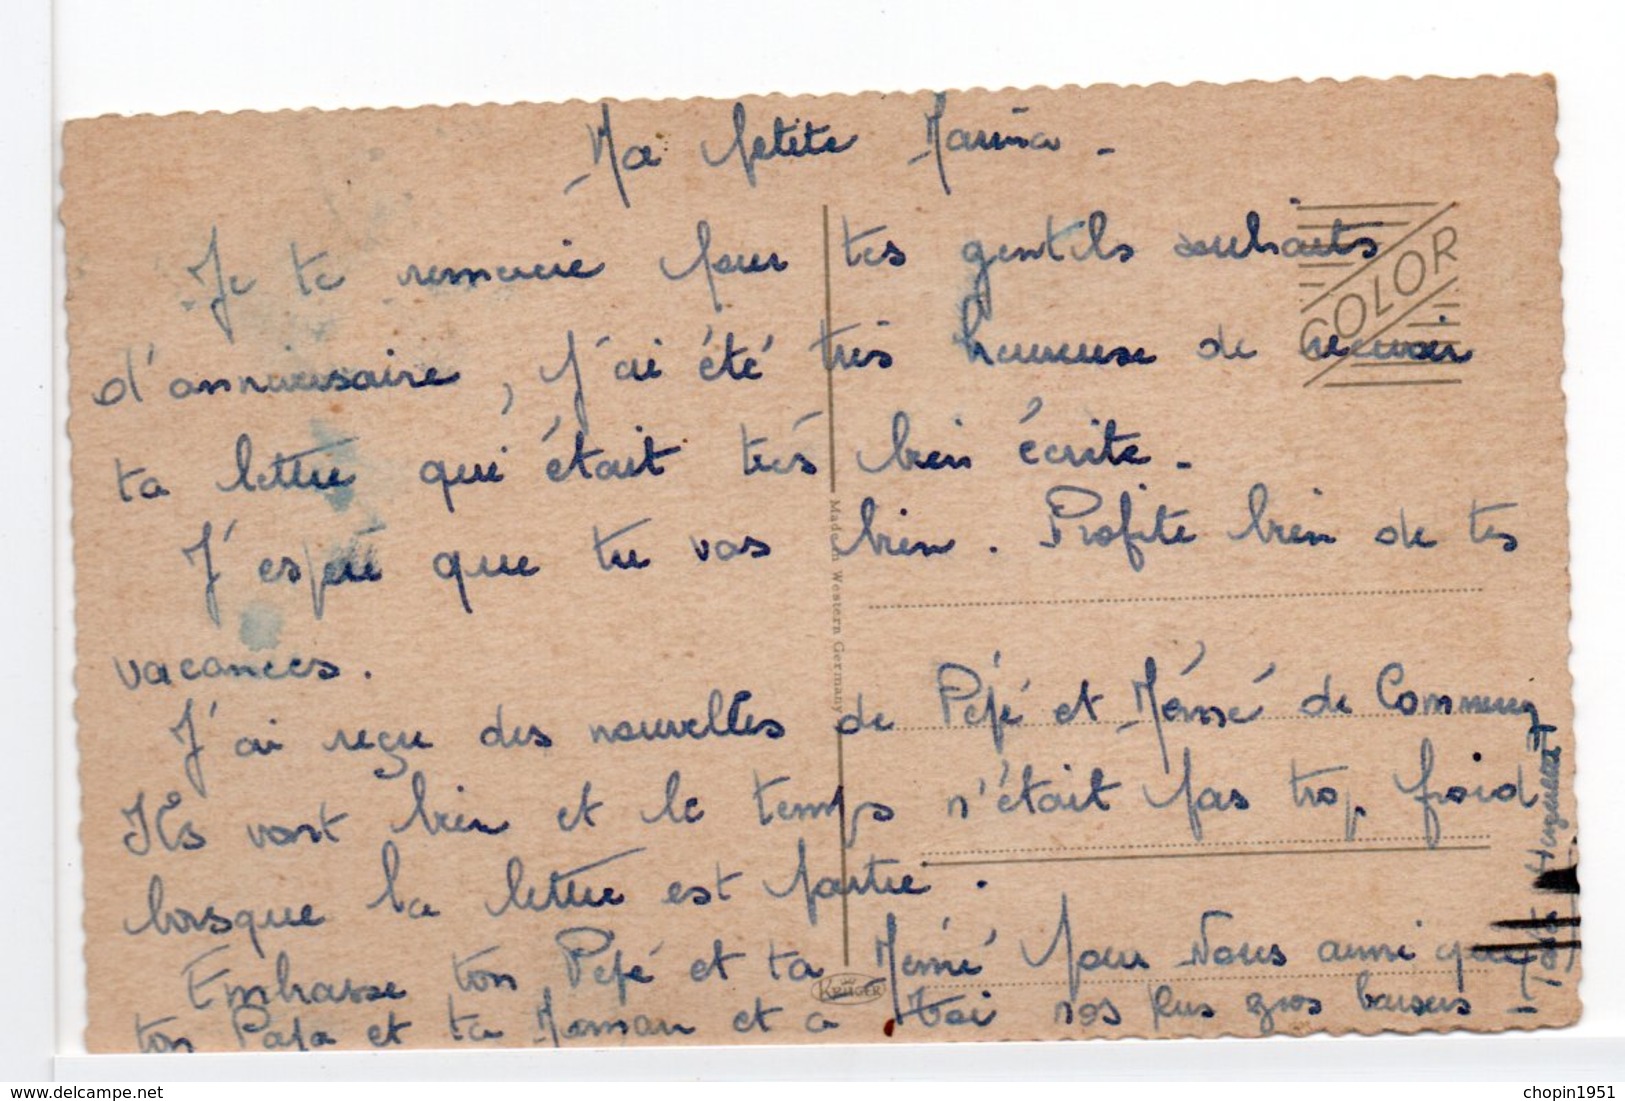 Ma petite Marina -
Je te remercie pour tes gentils souhaits
d'anniversaire, j'ai été très heureuse de recevoir
ta lettre qui était très bien écrite -
J'espère que tu vas bien. Profite bien de tes
vacances.
J'ai reçu des nouvelles de Pépé et Mémé de Commercy
Ils vont bien et le temps n'était pas trop froid
lorsque la lettre est partie.
Embrasse ton Pépé et ta Mémé pour Nous ainsi que
ton Papa et ta Maman et à toi nos plus gros baisers -
Huguette
COLOR
Made in Western Germany
KRÜGER
delcampe.net
chopin1951